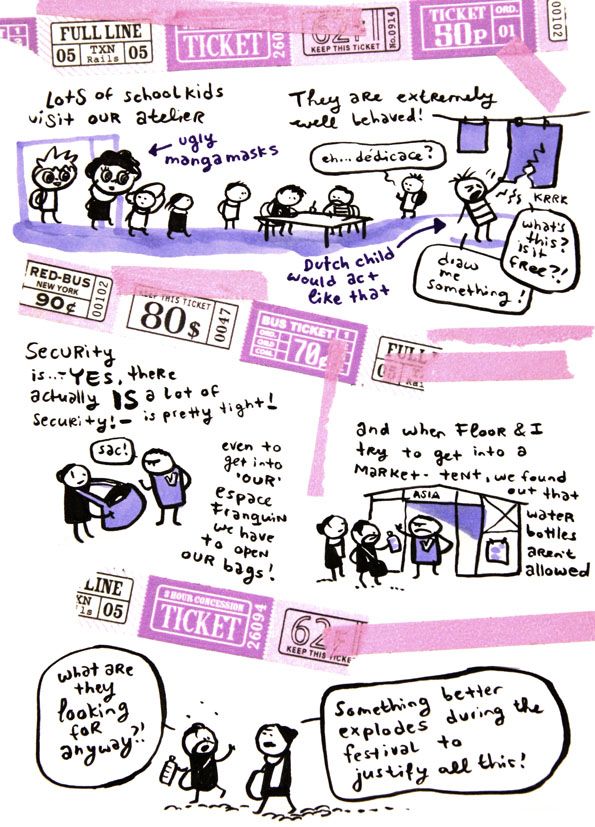 FULL LINE
05 TXN 05
Rails
TICKET
260
62
KEEP THIS TICKET
No.0914
TICKET ORD.
50p 01
00102
Lots of school kids
visit our atelier
ugly
manga masks
They are extremely
well behaved!
eh... dédicace?
KRRK
what's
this?
is it
free?!
draw
me
something!
Dutch child
would act
like that
RED-BUS
NEW YORK
90¢
00102
KEEP THIS TICKET
80$
0047
BUS TICKET 1
ORD.
CHILD
CONC.
70p
FULL
05
Rai
Security
is... YES, there
actually IS a lot of
security! - is pretty tight!
sac!
even to
get into
'OUR'
espace
Franquin
we have
to open
our bags!
and when Floor & I
try to get into a
market-tent, we found
out that
water
bottles
aren't
allowed
ASIA
LINE
XN 05
ls
2 HOUR CONCESSION
TICKET
26094
62
KEEP THIS TICKE
what are
they
looking
for
anyway?!
Something better
explodes during the
festival to
justify all this!